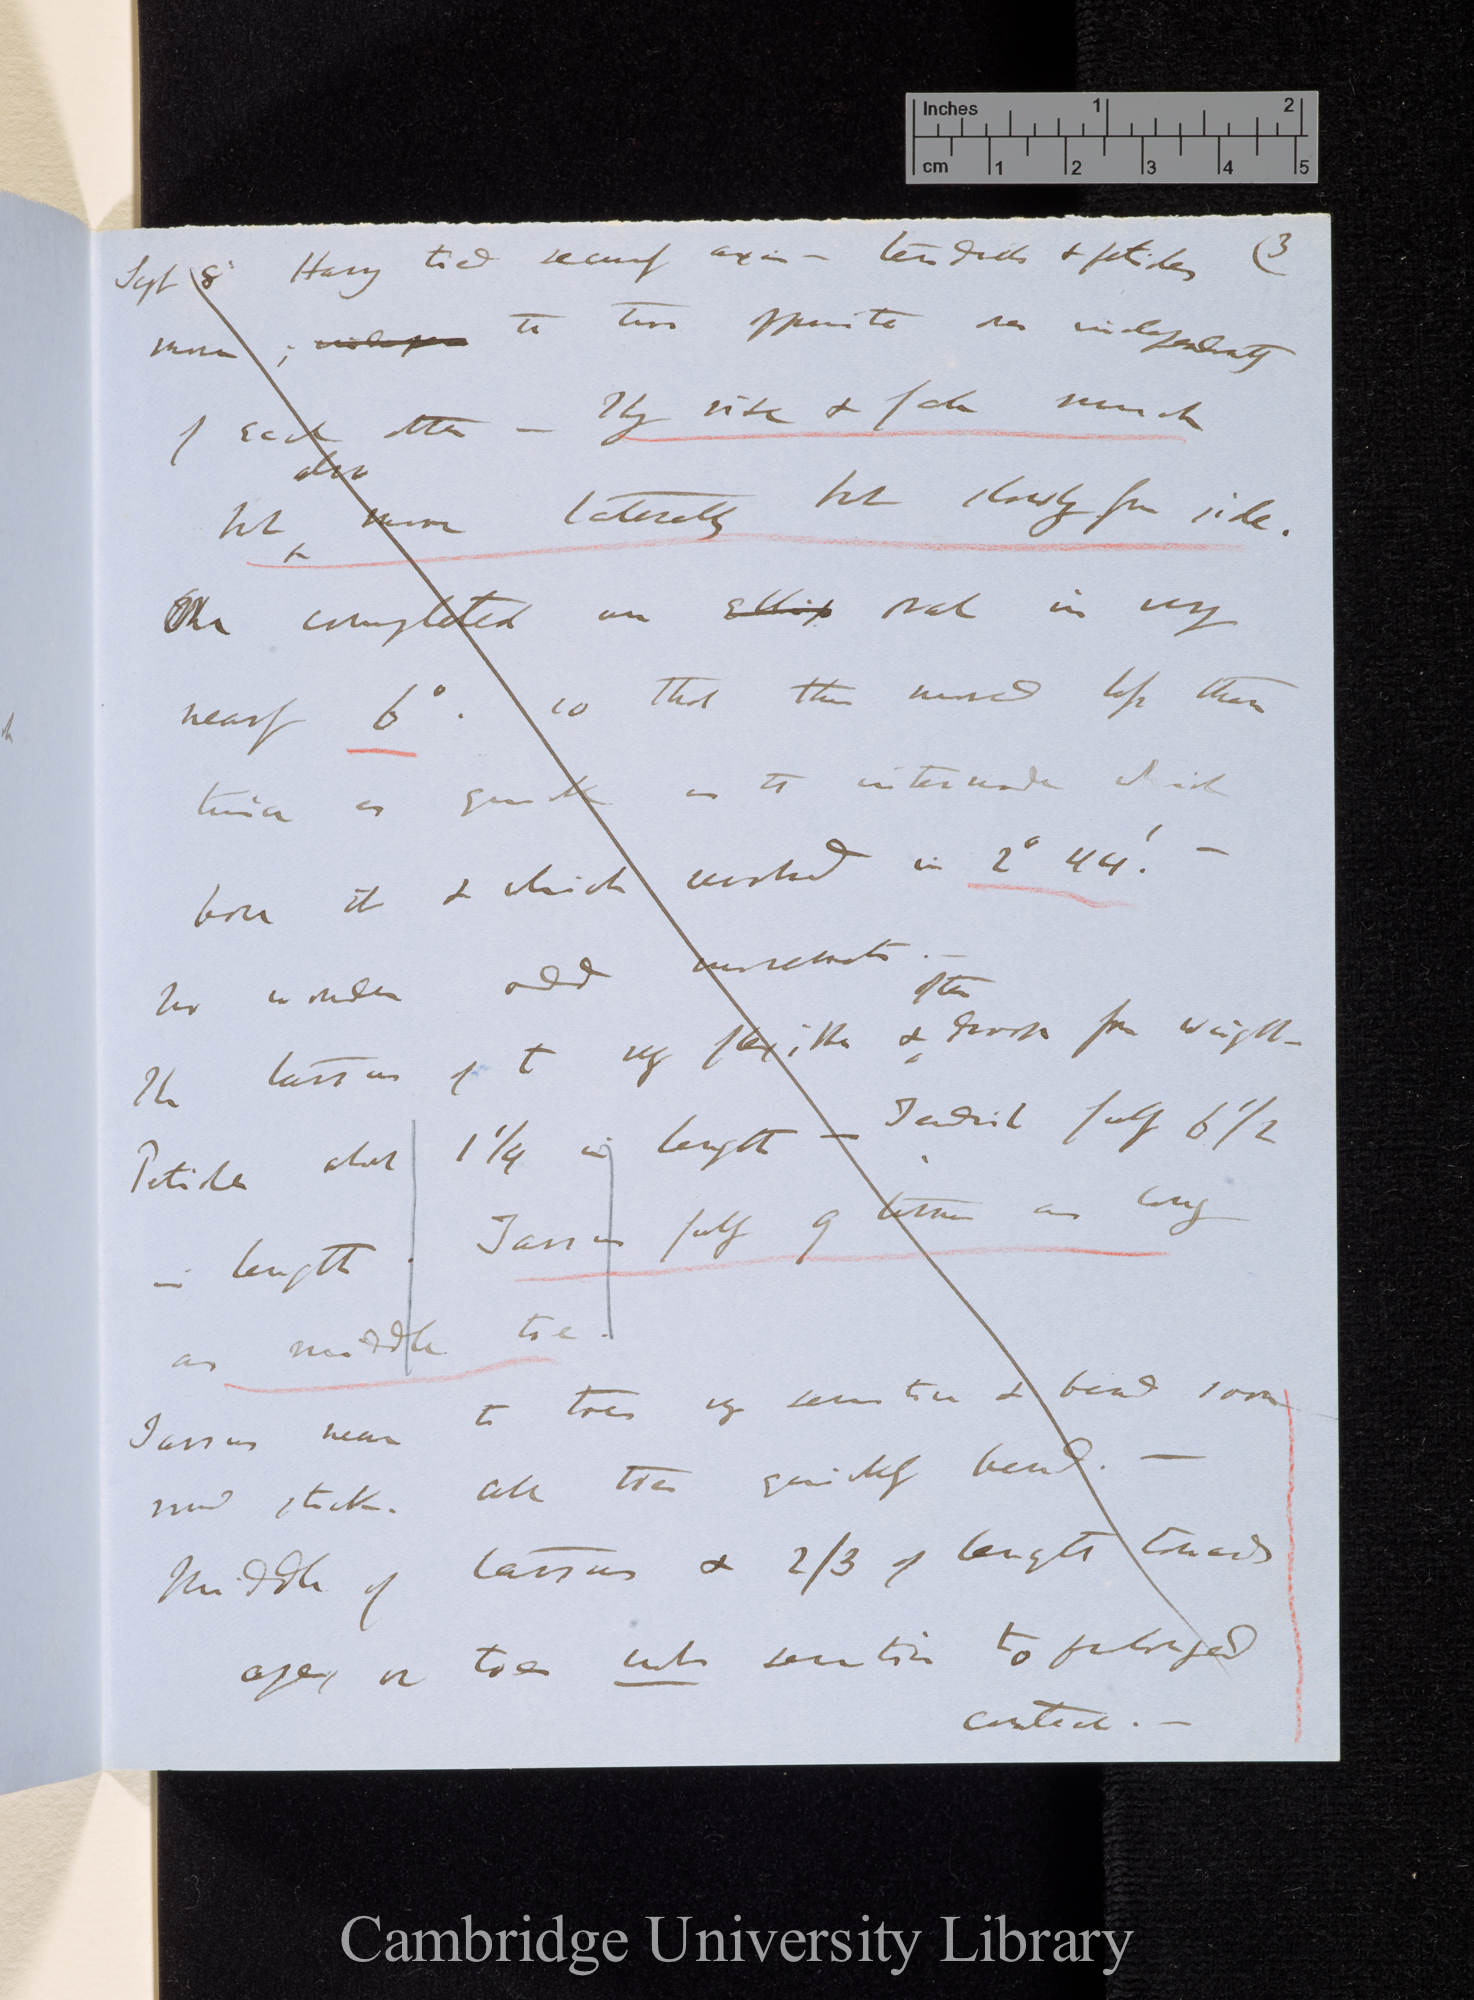 Inches 1 2
cm 1 2 3 4 5
(3
Sept 8' Having tied securely axis – tendrils & petioles
move; indepen the two opposite ones independently
of each other — They rise & fall much
also
but move laterally but slowly from side.
One completed an ellip oval in very
nearly 6°. so that thus moved less than
twice as quick as the internode which
bore it & which revolved in 2° 44'. —
No wonder odd movements. —
often
The tarsus of t very flexible & droops from weight—
Petioles about 1 1/4 in length — Tendril fully 6 1/2
in length. Tarsus fully 9 times as long
as middle toe.
Tarsus near the toes very sensitive & bend soon
round stick. All toes quickly bend. —
Middle of tarsus & 2/3 of length towards
apex of toes only sensitive to prolonged
contact. —
Cambridge University Library